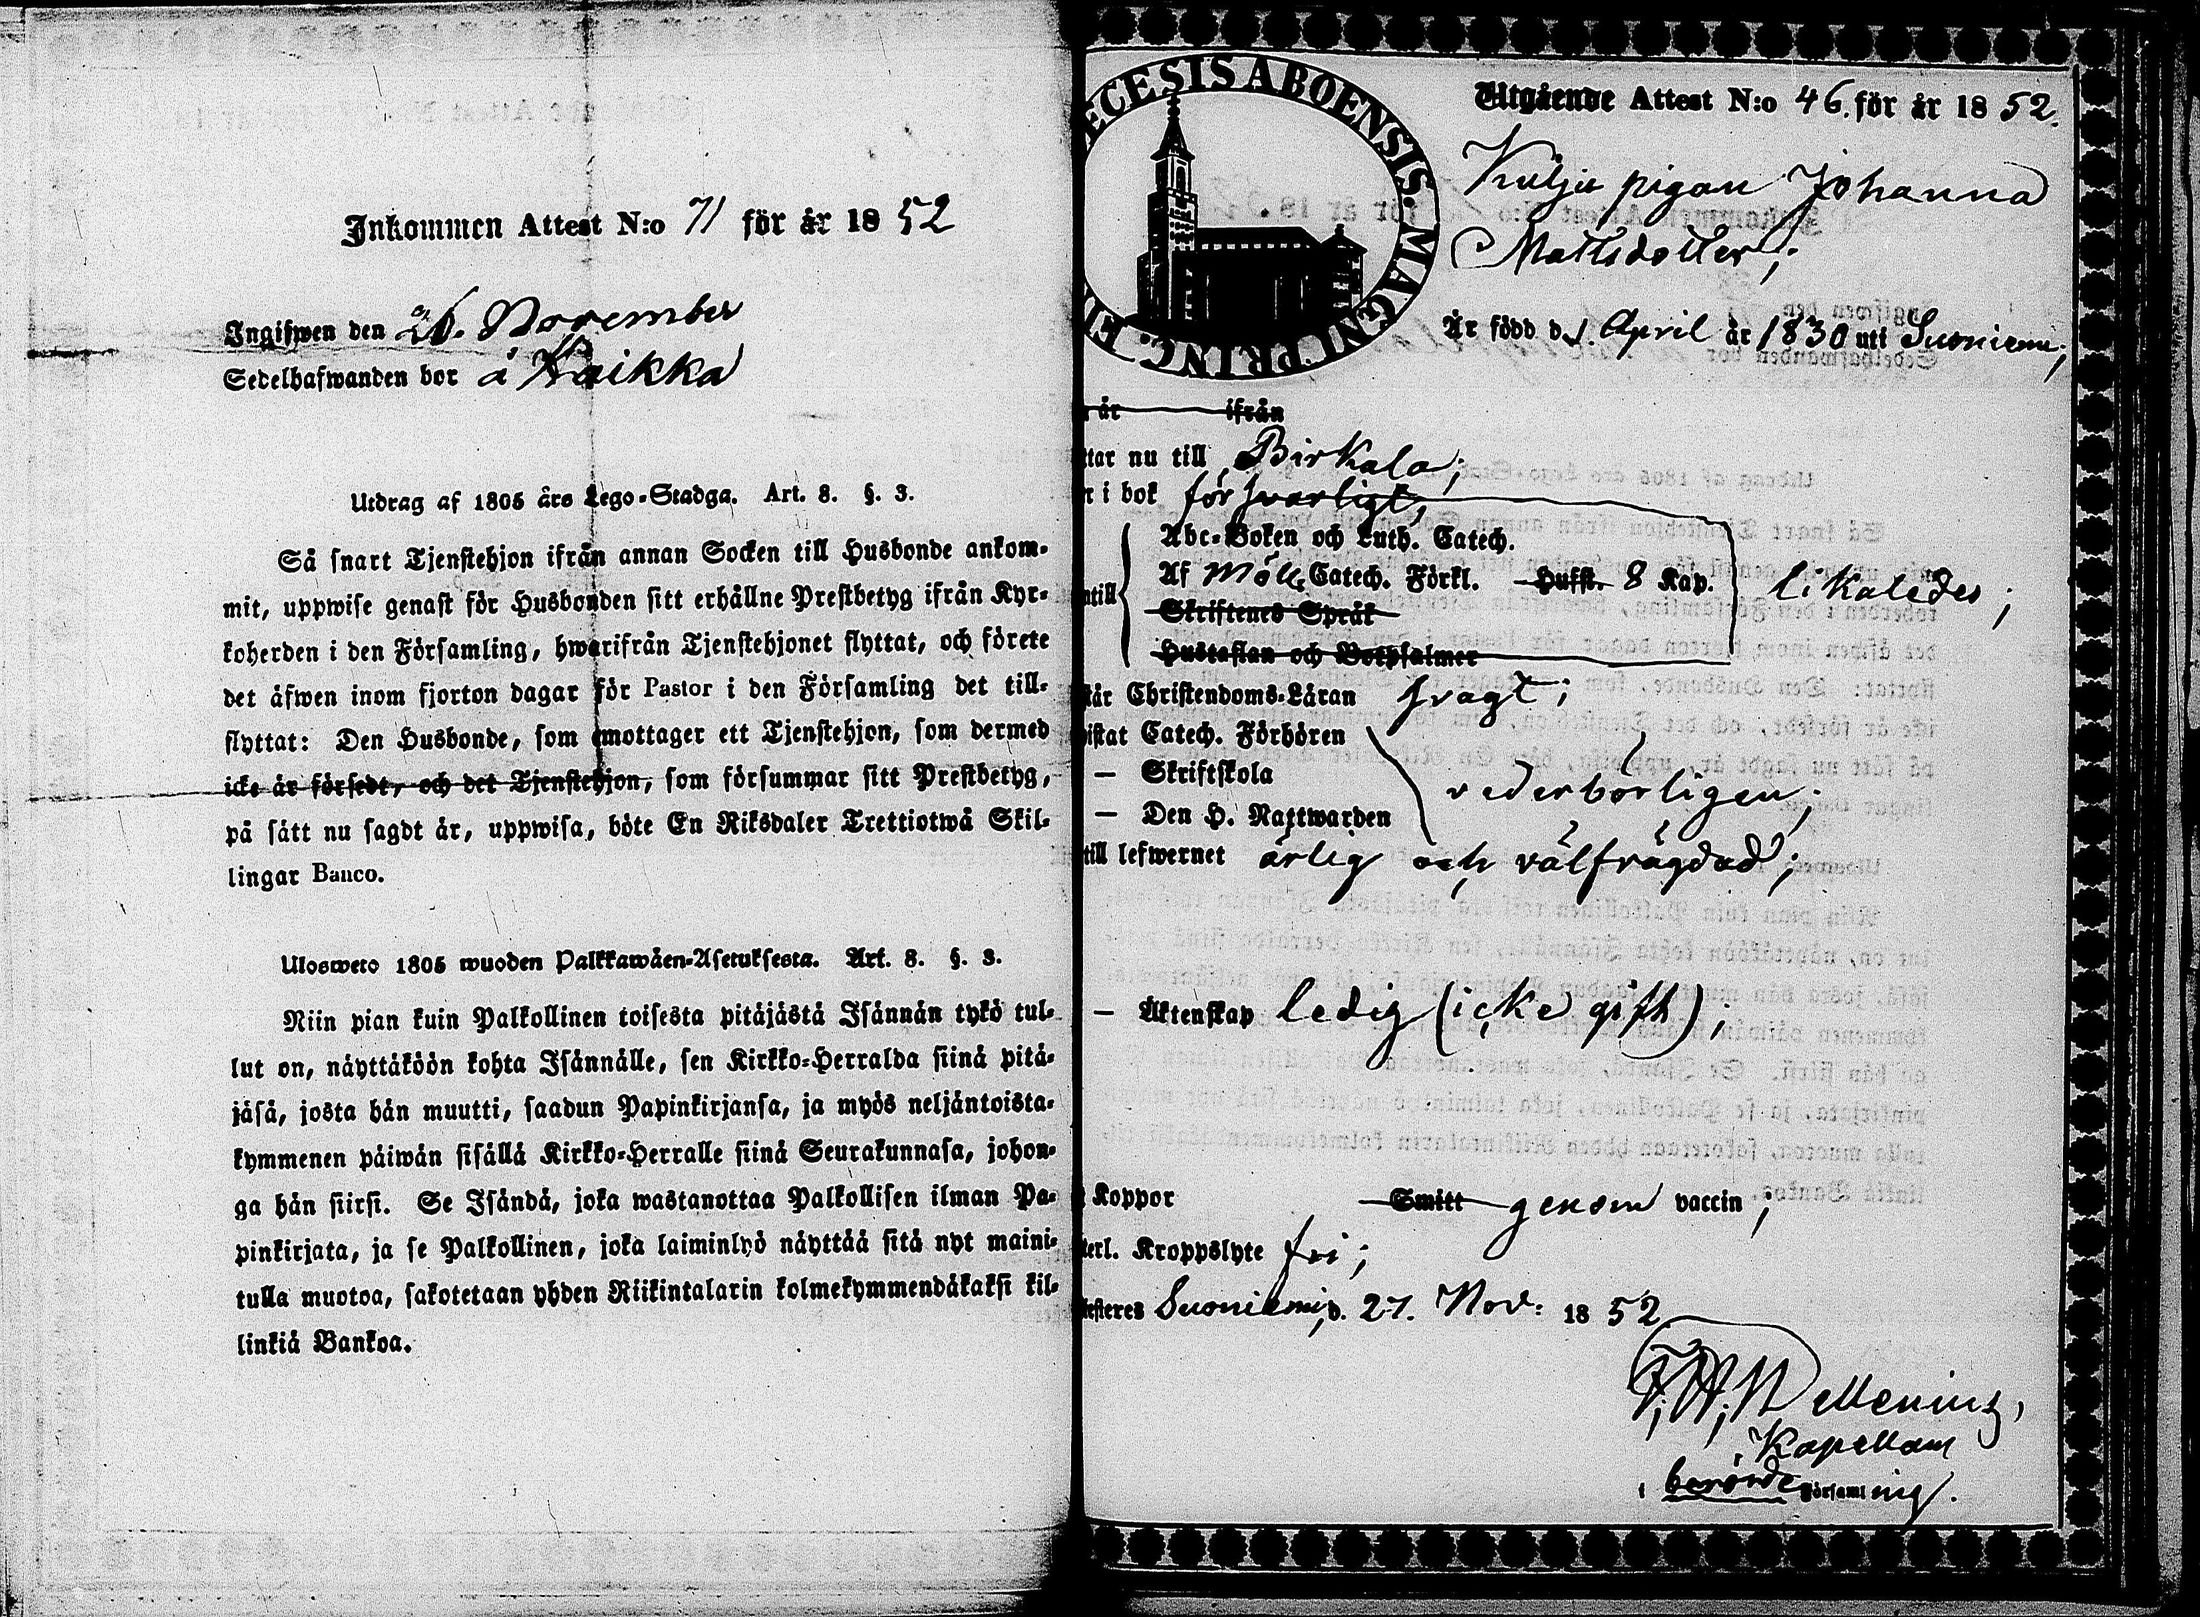 Inkommen Attest N:o 71 för år 1852
Ingifwen den 26. November
Sedelhafwanden bor å Kaikka
Utdrag af 1805 års Lego-Stadga. Art. 8. §. 3.
Så snart Tjenstehjon ifrån annan Socken till Husbonde ankom-
mit, uppwise genast för Husbonden sitt erhållne Prestbetyg ifrån Kyr-
koherden i den Församling, hwarifrån Tjenstehjonet flyttat, och förete
det äfwen inom fjorton dagar för Pastor i den Församling det till-
flyttat: Den Husbonde, som emottager ett Tjenstehjon, som dermed
icke är försedt, och det Tjenstehjon, som försummar sitt Prestbetyg,
på sätt nu sagdt är, uppwisa, böte En Riksdaler Trettiotwå Skil-
lingar Banco.
Ulosweto 1805 wuoden Palkkawäen-Asetuksesta. Art. 8. §. 3.
Niin pian kuin Palkollinen toisesta pitäjästä Isännän tykö tul-
lut on, näyttäköön kohta Isännälle, sen Kirkko-Herralda siinä pitä-
jäsä, josta hän muutti, saadun Papinkirjansa, ja myös neljäntoista-
kymmenen päiwän sisällä Kirkko-Herralle siinä Seurakunnasa, johon-
ga hän siirsi. Se Isändä, joka wastanottaa Palkollisen ilman Pa-
pinkirjata, ja se Palkollinen, joka laiminlyö näyttää sitä nyt maini-
tulla muotoa, sakotetaan yhden Riikintalarin kolmekymmendäkaksi kil-
linkiä Bankoa.
ECESIS ABOENSIS. MAGNI PRINC. FI
Utgående Attest N:o 46. för år 1852.
Kulju pigan Johanna
Mattsdotter;
Är född d. 1. April år 1830 uti Suoniemi;
år ifrån
ttar nu till Birkala;
r i bok försvarligt,
Abc-Boken och Luth. Catech.
ntill Af Möll. Catech. Förkl. Hufst. 8 Kap. likaledes;
Skriftenes Språk
Hustaflan och Botpsalmer
tår Christendoms-Läran svagt;
istat Catech. Förhören
— Skriftskola vederbörligen;
— Den H. Nattwarden
till lefwernet ärlig och välfrägdad;
— Äktenskap ledig (icke gift);
Koppor Smitt genom vaccin;
terl. Kroppslyte fri;
testeres Suoniemi, d. 27. Nov: 1852.
F. W. Mellenius,
Kapellan
i berörde Församling.